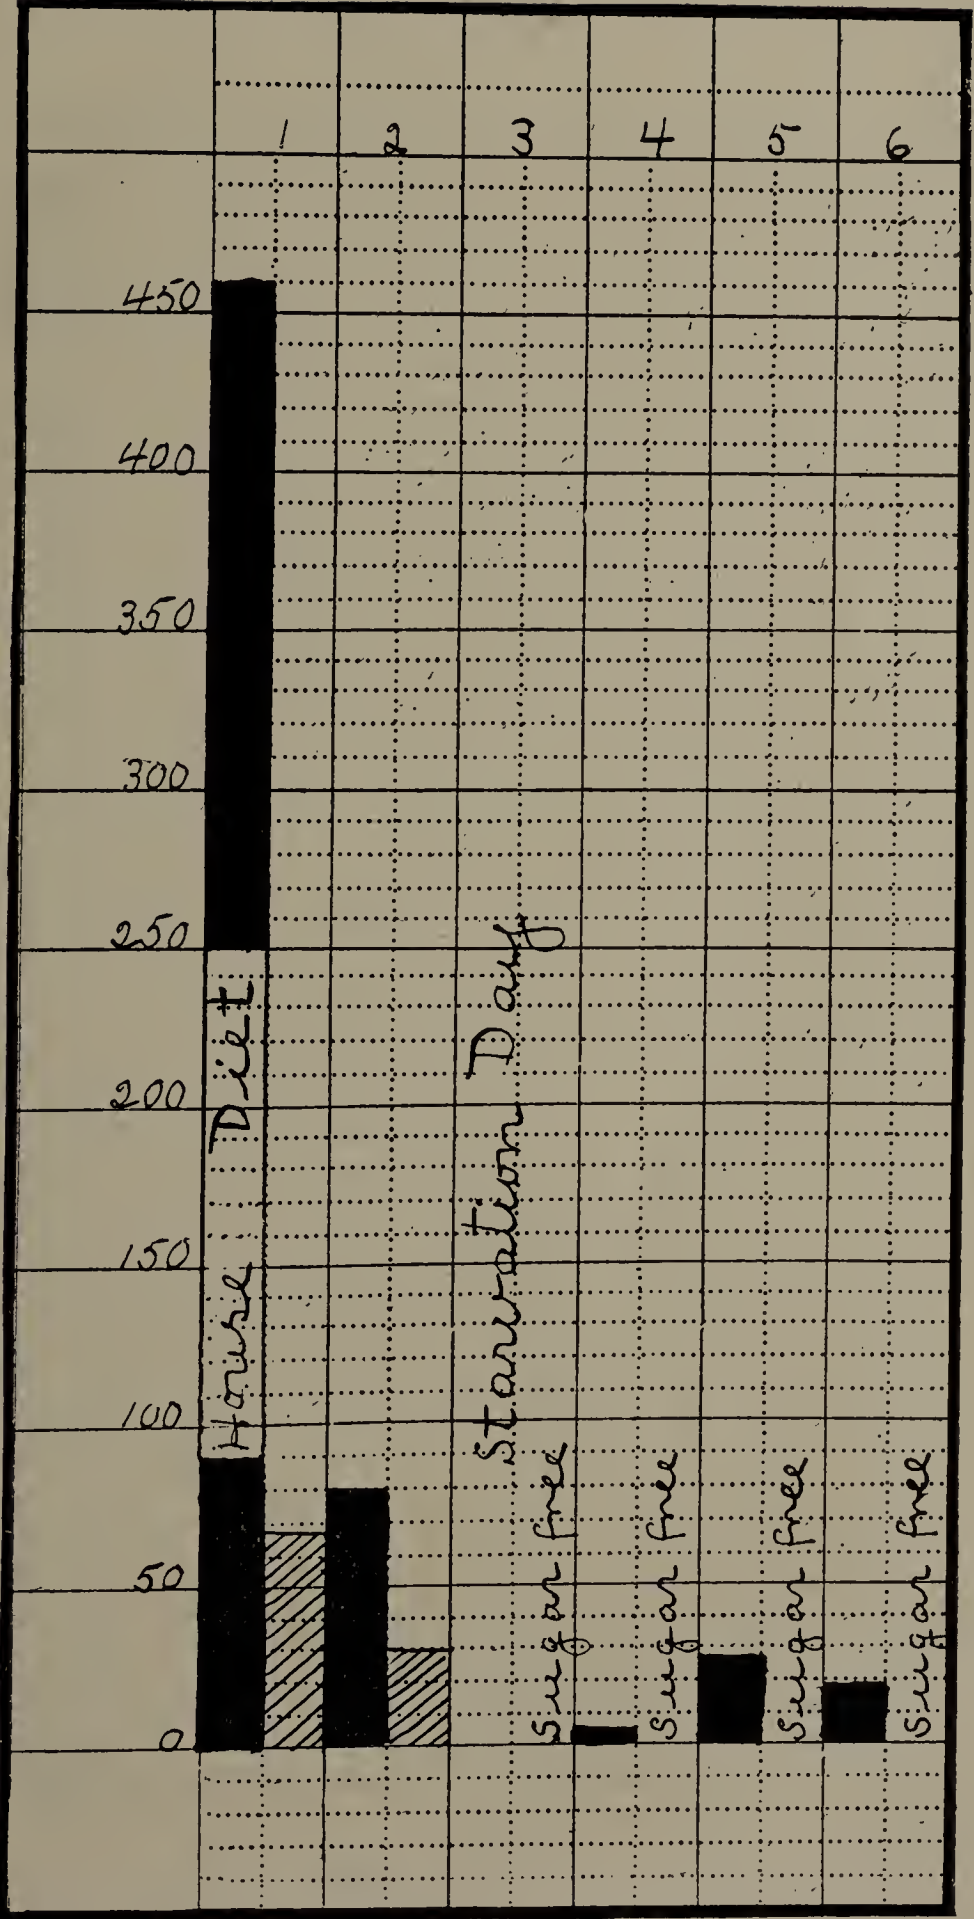 1 2 3 4 5 6
450
400
350
300
250
200
150
100
50
0
House Diet
Starvation Day
Sugar free
Sugar free
Sugar free
Sugar free